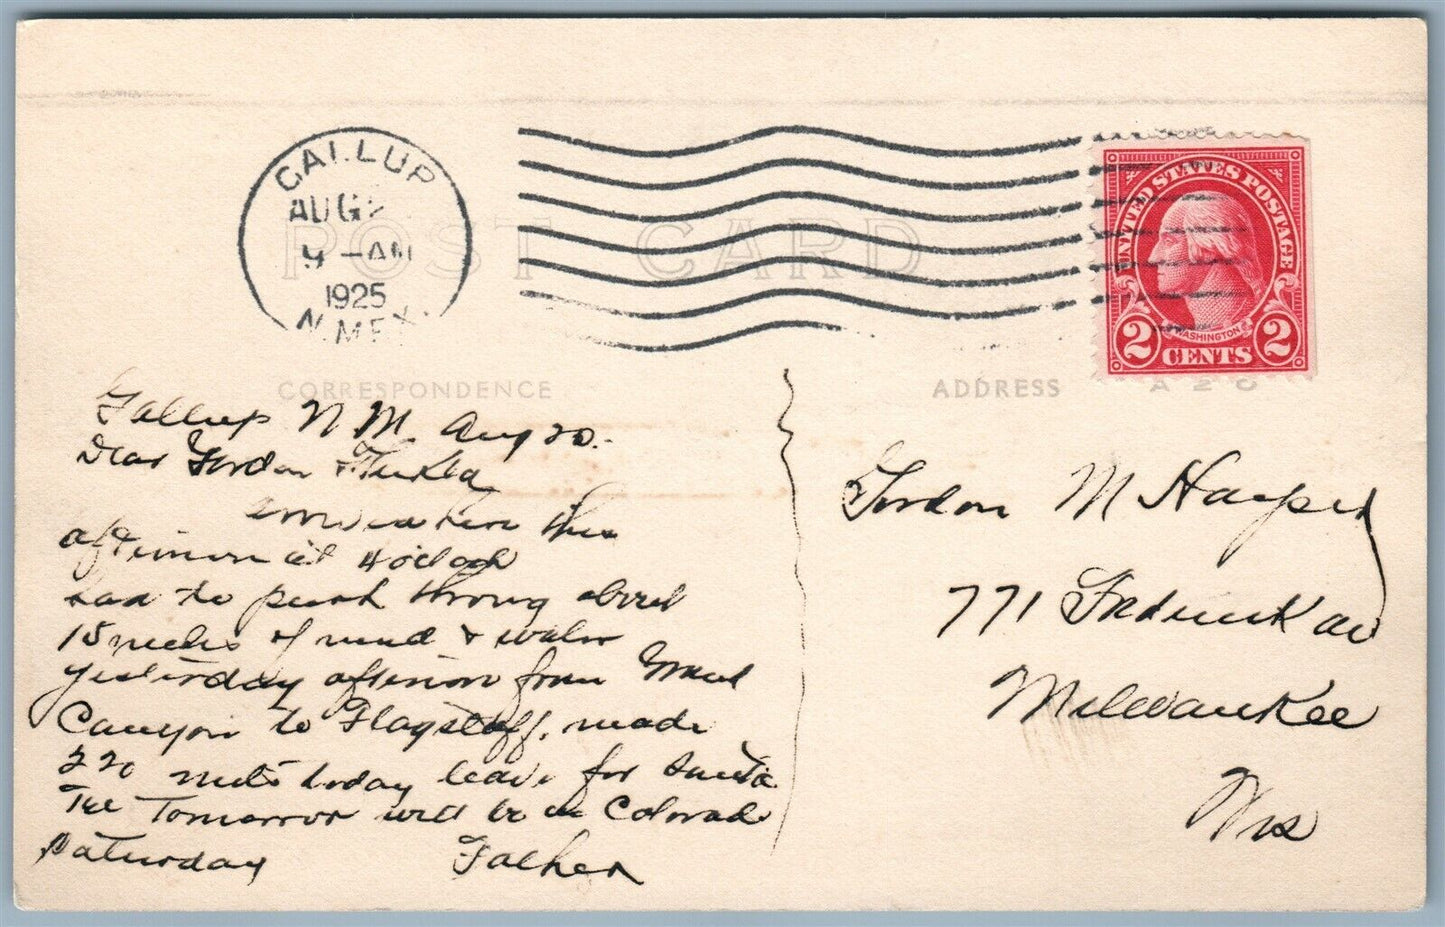 GALLUP
AUG 2
9 - AM
1925
N. MEX.
POST CARD
UNITED STATES POSTAGE
WASHINGTON
2 CENTS 2
CORRESPONDENCE
ADDRESS
Gallup N M. Aug 20.
Dear Gordon &
arrived here this
afternoon at 4 oclock
had to push throug about
15 miles of mud & water
yesterday afternoon from Grand
Canyon to Flagstaff, made
220 miles today leave for Santa
Fee Tomorrow will be in Colorado
Saturday Father
Gordon M Harper
771 Frederick av
Milwaukee
Wis